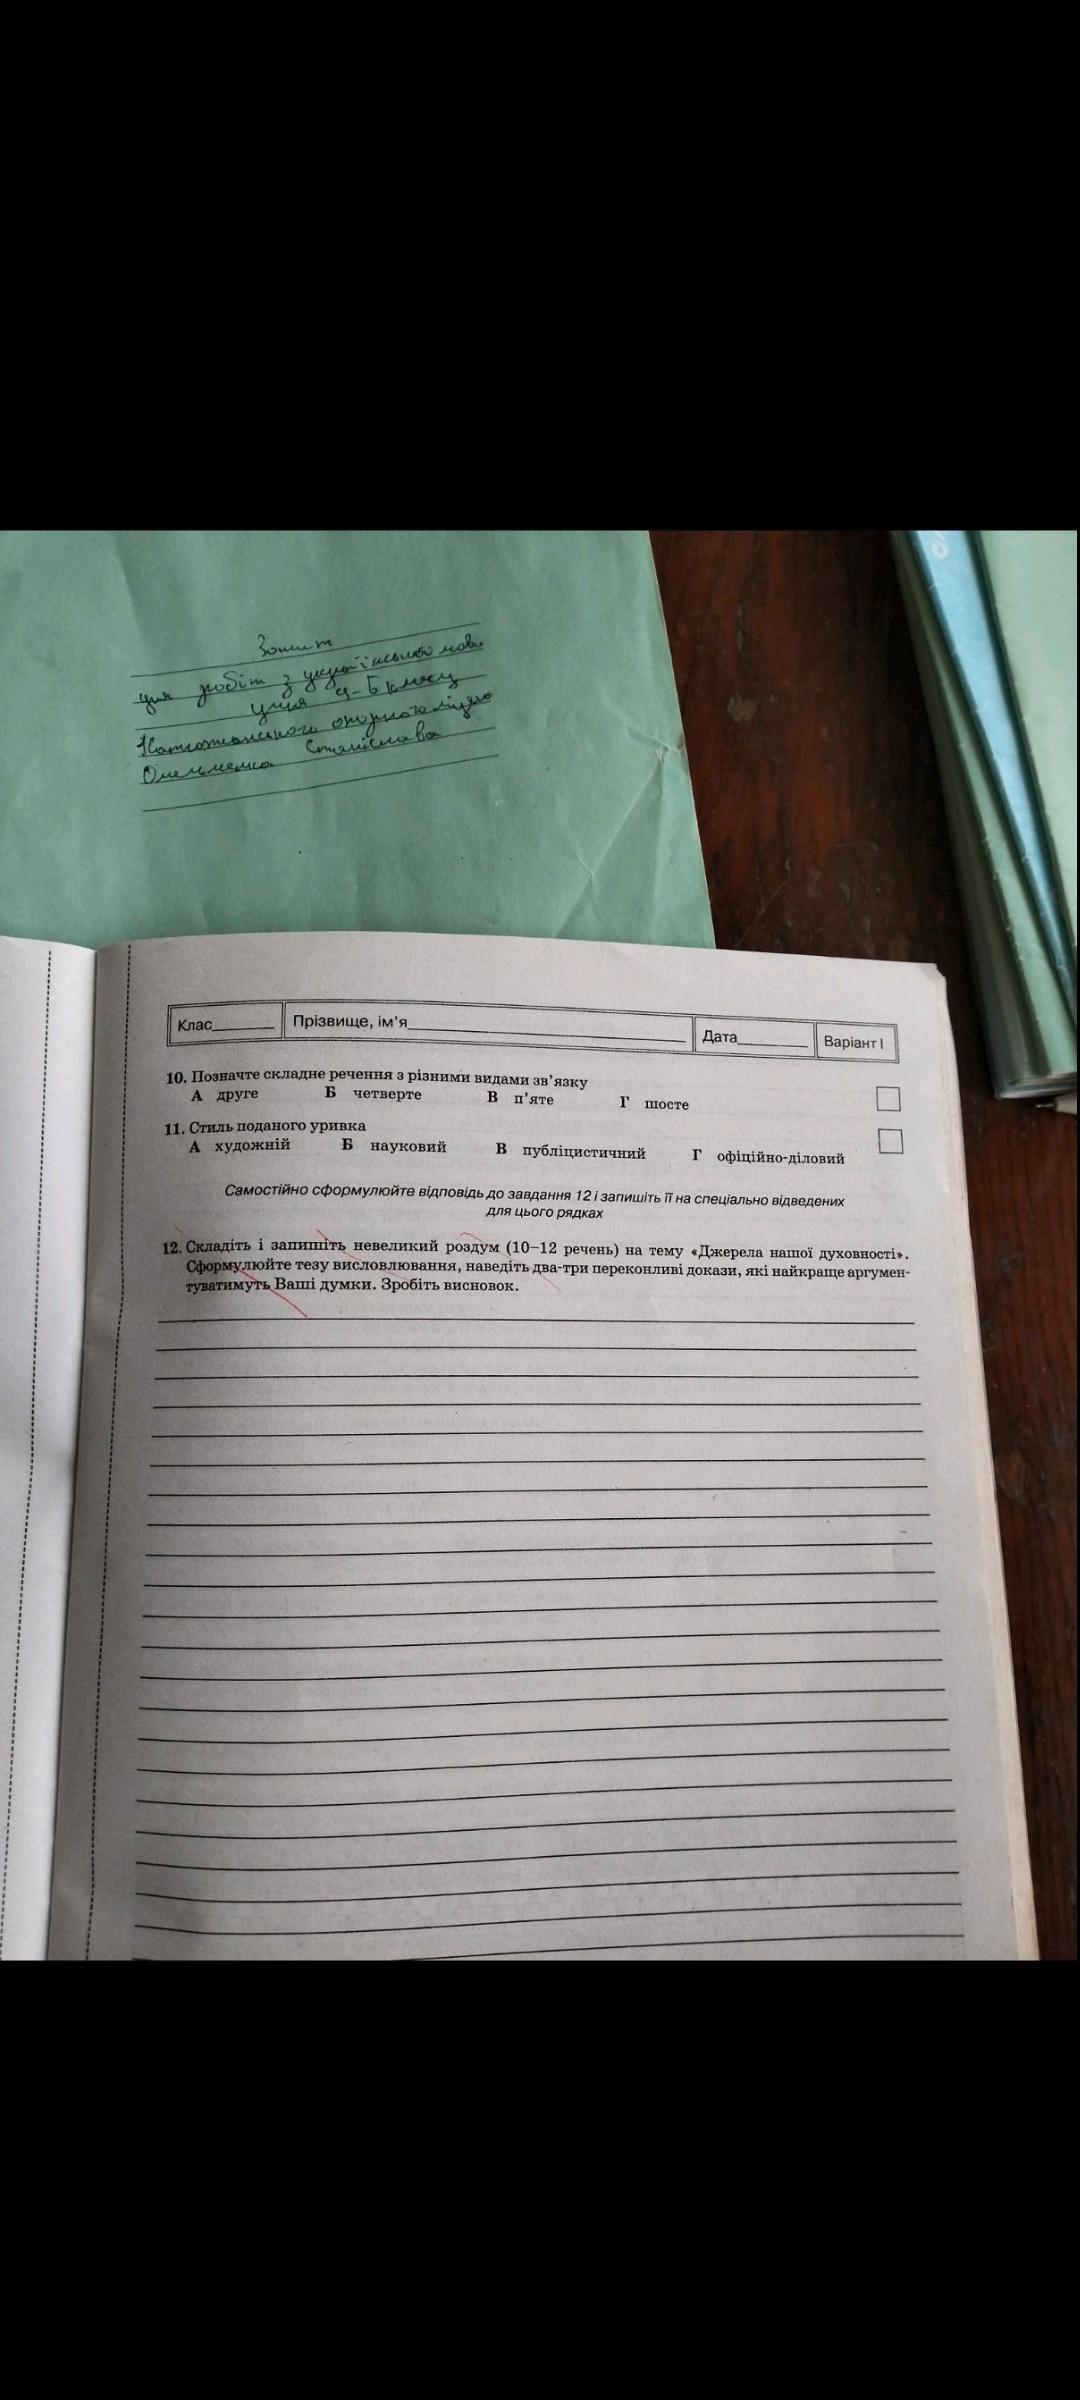 Зошит
для робіт з української мови
учня 9-Б класу
опорного ліцею
Станіслава
Клас______ Прізвище, ім'я______ Дата______ Варіант І
10. Позначте складне речення з різними видами зв'язку
А друге Б четверте В п'яте Г шосте
11. Стиль поданого уривка
А художній Б науковий В публіцистичний Г офіційно-діловий
Самостійно сформулюйте відповідь до завдання 12 і запишіть її на спеціально відведених
для цього рядках
12. Складіть і запишіть невеликий роздум (10–12 речень) на тему «Джерела нашої духовності».
Сформулюйте тезу висловлювання, наведіть два-три переконливі докази, які найкраще аргумен-
туватимуть Ваші думки. Зробіть висновок.